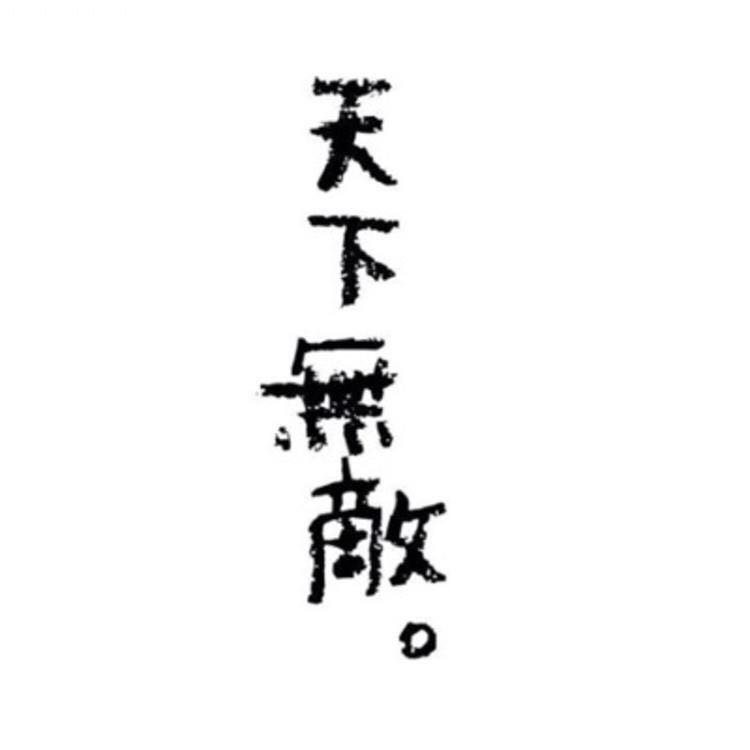 天下無敵。